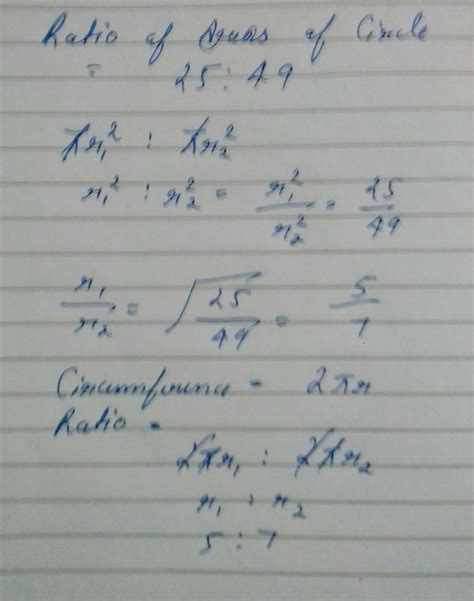 Ratio of Areas of Circle
= 25 : 49
πr₁² : πr₂²
r₁² : r₂² = r₁²/r₂² = 25/49
r₁/r₂ = √25/49 = 5/7
Circumfounce = 2πr
Ratio =
2πr₁ : 2πr₂
r₁ : r₂
5 : 7